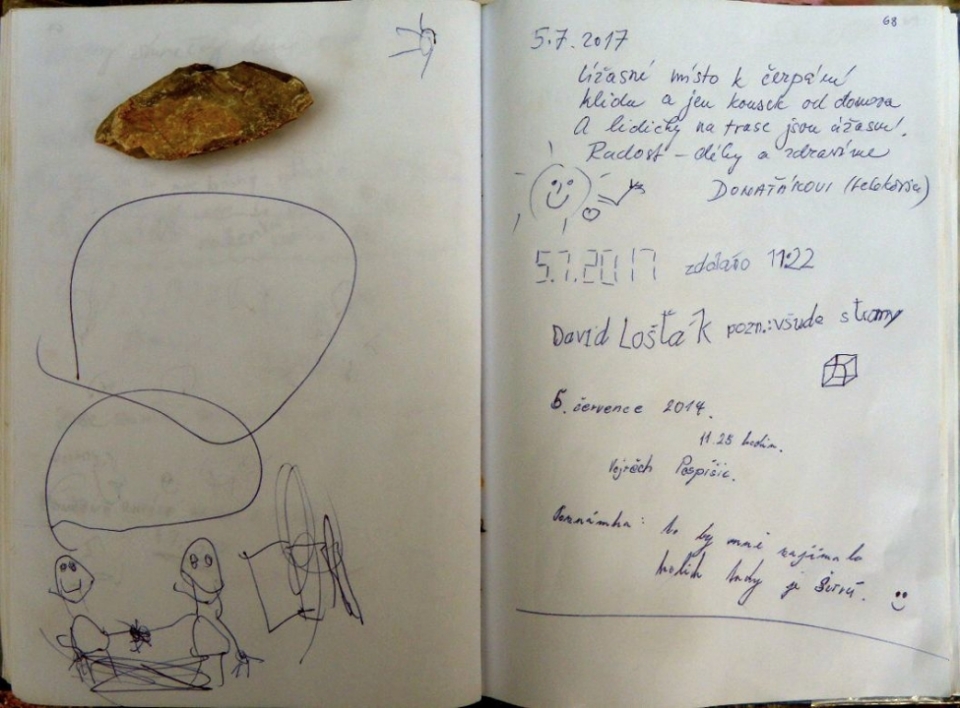 68
5.7.2017
Úžasné místo k čerpání
klidu a jen kousek od domova
A lidičky na trase jsou úžasní.
Radost – díky a zdravíme
DOMAŤÁKOVI
5.7.2017 zdoláno 11:22
David Lošťák pozn.:všude stromy
5. července 2017.
11.25 hodin.
Vojtěch Pospíšil.
Poznámka: to by mně zajímalo
kolik tady je